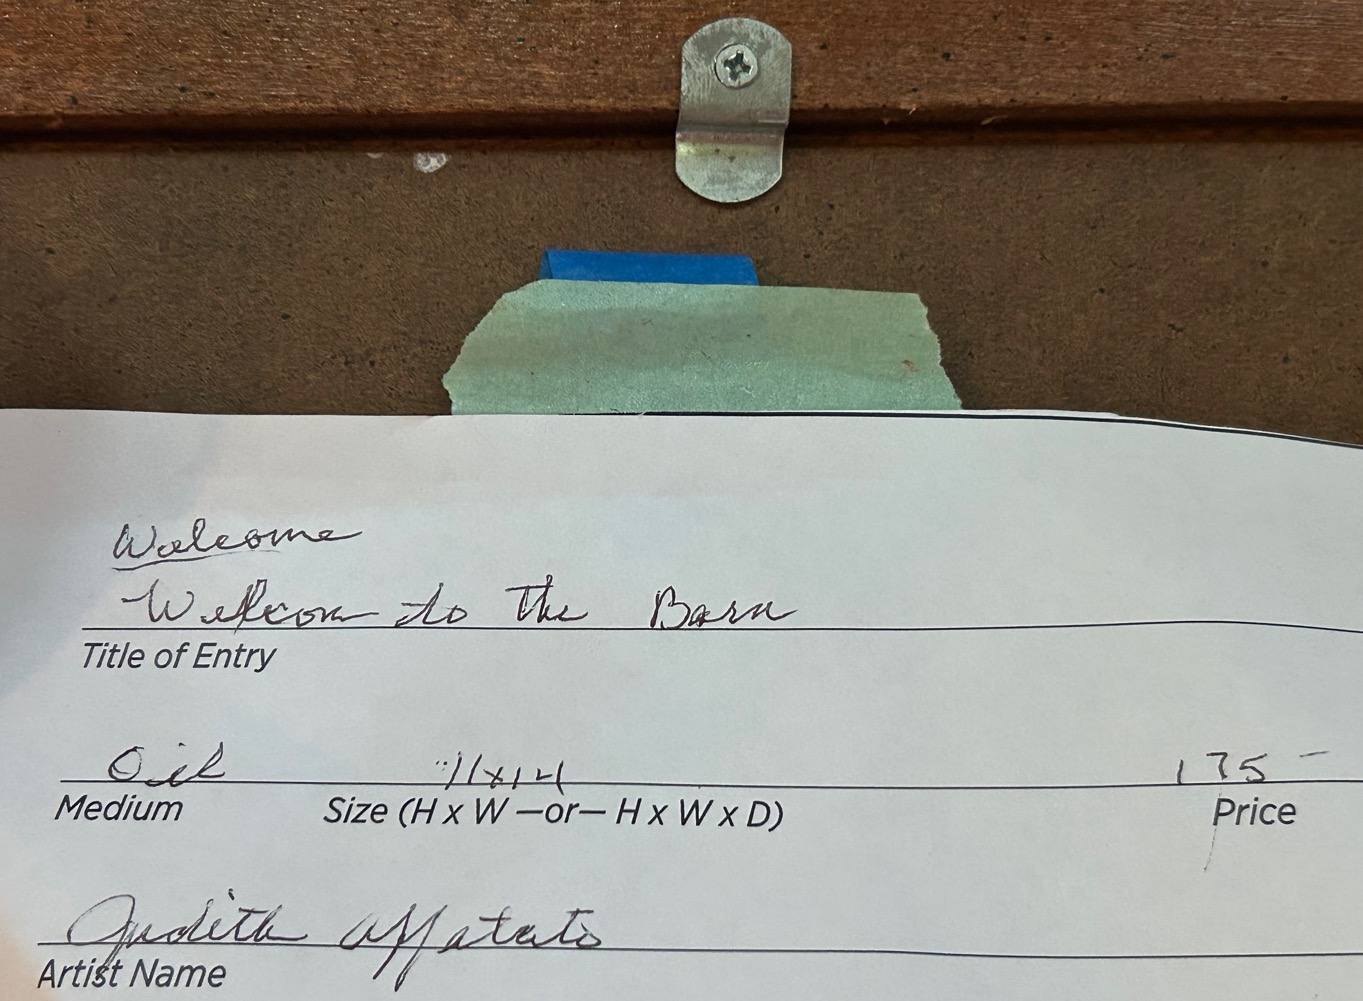 Welcome
Welcom to The Barn
Title of Entry
Oil 11x14 175 -
Medium Size (H x W —or— H x W x D) Price
Judith Affatato
Artist Name